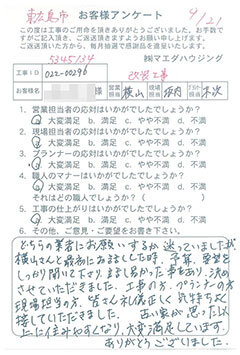 東広島市 お客様アンケート 4/21
この度は工事のご用命を頂きありがとうございました。お手数で
すがご記入頂き、ご返送頂きますようお願い申し上げます。
ご返送頂いた方から、毎月抽選で感謝品を進呈いたします。
5345134 ㈱マエダハウジング
工事ID 022-00296 改修工事
お客様名 営業担当 横山 現場担当 職人
1. 営業担当者の応対はいかがでしたでしょうか?
a 大変満足 b. 満足 c. やや不満 d. 不満
2. 現場担当者の応対はいかがでしたでしょうか?
a 大変満足 b. 満足 c. やや不満 d. 不満
3. プランナーの応対はいかがでしたでしょうか?
a 大変満足 b. 満足 c. やや不満 d. 不満
4. 職人のマナーはいかがでしたでしょうか?
a 大変満足 b. 満足 c. やや不満 d. 不満
それはどの職人でしょうか( )
5. 工事の仕上がりはいかがでしたでしょうか?
a 大変満足 b. 満足 c. やや不満 d. 不満
6. その他、ご意見・ご要望をお書き下さい。
どちらの業者にお願いするか迷っていましたが
横山さんと最初にお話しした時、予算、要望を
しっかり聞いて下さり、また話し易かった事もあり、決め
させていただきました。工事の方、プランナーの方
現場担当の方、皆さん礼儀正しく気持ち良く
接していただきました。古い家が思った以
上に住みやすくなり、大変満足しています。
ありがとうございました。